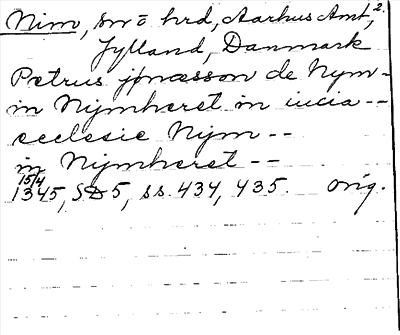 Nim, sn ō hrd, Aarhus Amt, 2.
Jylland, Danmark
Petrus jönæsson de Nym -
in Nijmheret in iucia --
ecclesie Nijm --
in Nijmheret --
15/4
1345, SD5, ss. 434, 435. orig.